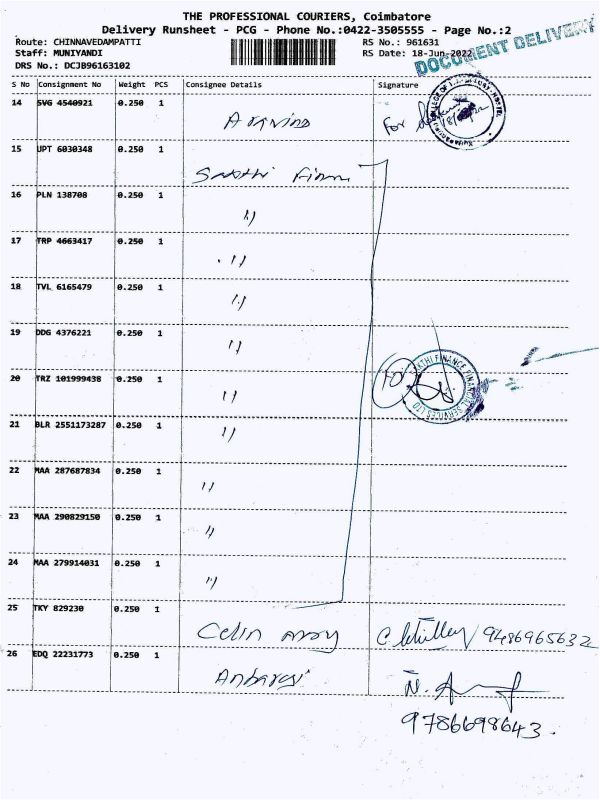 THE PROFESSIONAL COURIERS, Coimbatore
Delivery Runsheet - PCG - Phone No.:0422-3505555 - Page No.:2
Route: CHINNAVEDAMPATTI RS No.: 961631
Staff: MUNIYANDI RS Date: 18-Jun-2022
DRS No.: DCJB96163102
DOCUMENT DELIVERY
S No Consignment No Weight PCS Consignee Details Signature
14 SVG 4540921 0.250 1
Aravind For
15 UPT 6030348 0.250 1
Sakthi Finan
16 PLN 138708 0.250 1
"
17 TRP 4663417 0.250 1
"
18 TVL 6165479 0.250 1
"
19 DDG 4376221 0.250 1
"
20 TRZ 101999438 0.250 1
"
SAKTHI FINANCE FINANCIAL SERVICES LTD
21 BLR 2551173287 0.250 1
"
22 MAA 287687834 0.250 1
"
23 MAA 290829150 0.250 1
"
24 MAA 279914031 0.250 1
"
25 TKY 829230 0.250 1
Celin 9486965632
26 EDQ 22231773 0.250 1
Anbarasi N.
9786698643.